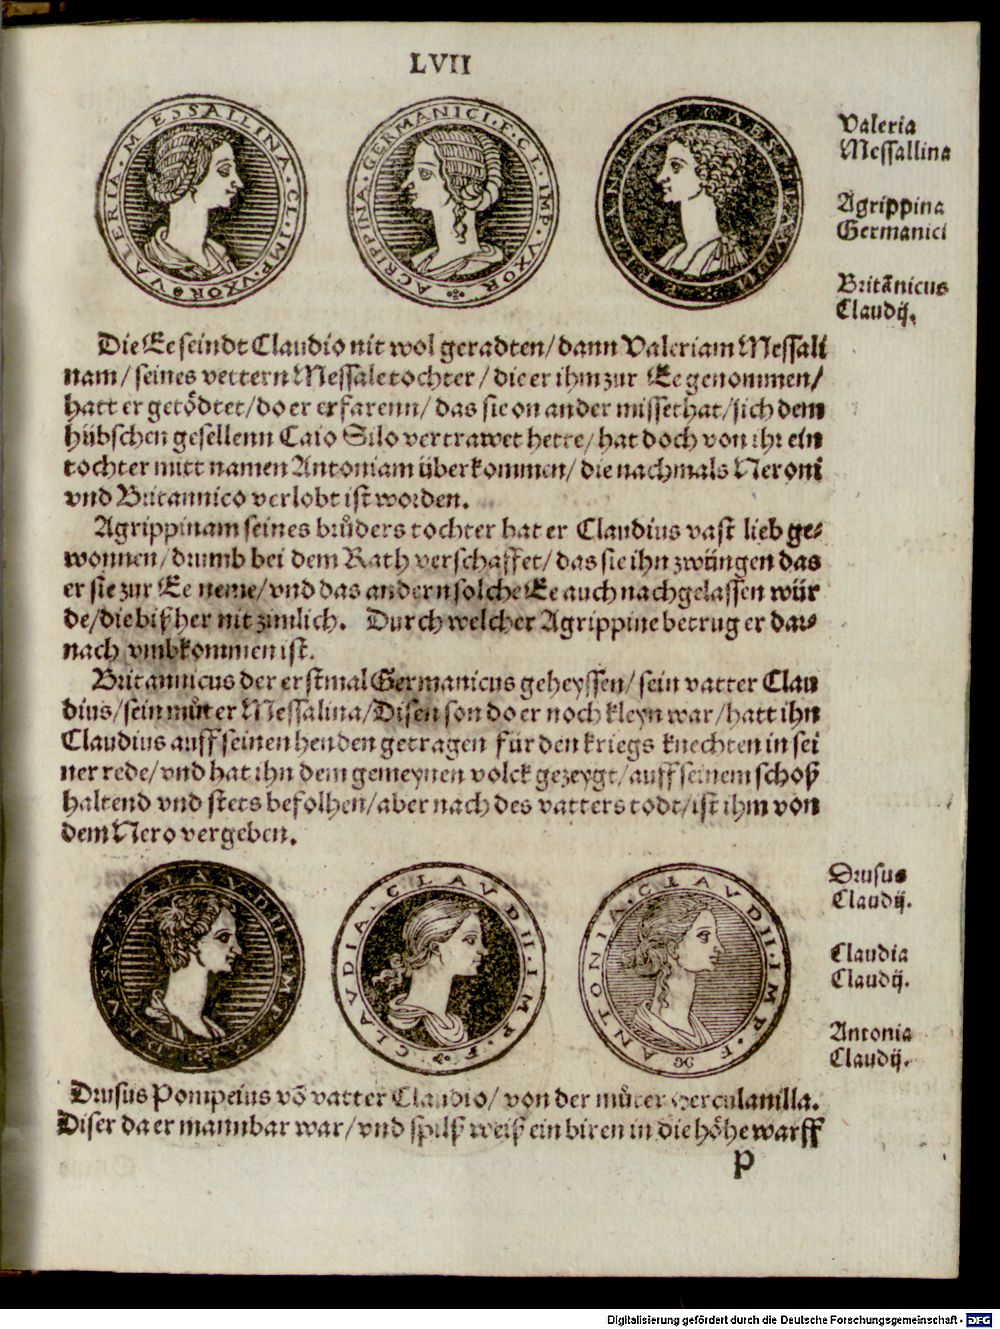 LVII
VALERIA · MESSALLINA · CL · IMP · VXOR
AGRIPPINA · GERMANICI · F · CL · IMP · VXOR
Valeria
Messallina
Agrippina
Germanici
Britānicus
Claudij.
Die Ee seindt Claudio nit wol geradten/ dann Valeriam Messali
nam/ seines vettern Messale tochter/ die er ihm zur Ee genommen/
hatt er getödtet/ do er erfarenn/ das sie on ander missethat/ sich dem
hübschen gesellenn Caio Silo vertrawet hette/ hat doch von ihr ein
tochter mitt namen Antoniam überkommen/ die nachmals Neroni
vnd Britannico verlobt ist worden.
Agrippinam seines brůders tochter hat er Claudius vast lieb ge⸗
wonnen/ drumb bei dem Rath verschaffet/ das sie ihn zwüngen das
er sie zur Ee neme/ vnd das andern solche Ee auch nachgelassen wür
de/ die bißher nit zimlich. Durch welcher Agrippine betrug er dar⸗
nach vmbkommen ist.
Britannicus der erstmal Germanicus geheyssen/ sein vatter Clau
dius/ sein můter Messalina/ Disen son do er noch kleyn war/ hatt ihn
Claudius auff seinen henden getragen für den kriegs knechten in sei
ner rede/ vnd hat ihn dem gemeynen volck gezeygt/ auff seinem schoß
haltend vnd stets befolhen/ aber nach des vatters todt/ ist ihm von
dem Nero vergeben.
DRVSVS · CLAVDII · IMP · F
CLAVDIA · CLAVDII · IMP · F
ANTONIA · CLAVDII · IMP · F
Drusus
Claudij.
Claudia
Claudij.
Antonia
Claudij.
Drusus Pompeius võ vatter Claudio/ von der můter Herculanilla.
Diser da er mannbar war/ vnd spilß weiß ein biren in die höhe warff
P
Digitalisierung gefördert durch die Deutsche Forschungsgemeinschaft - DFG